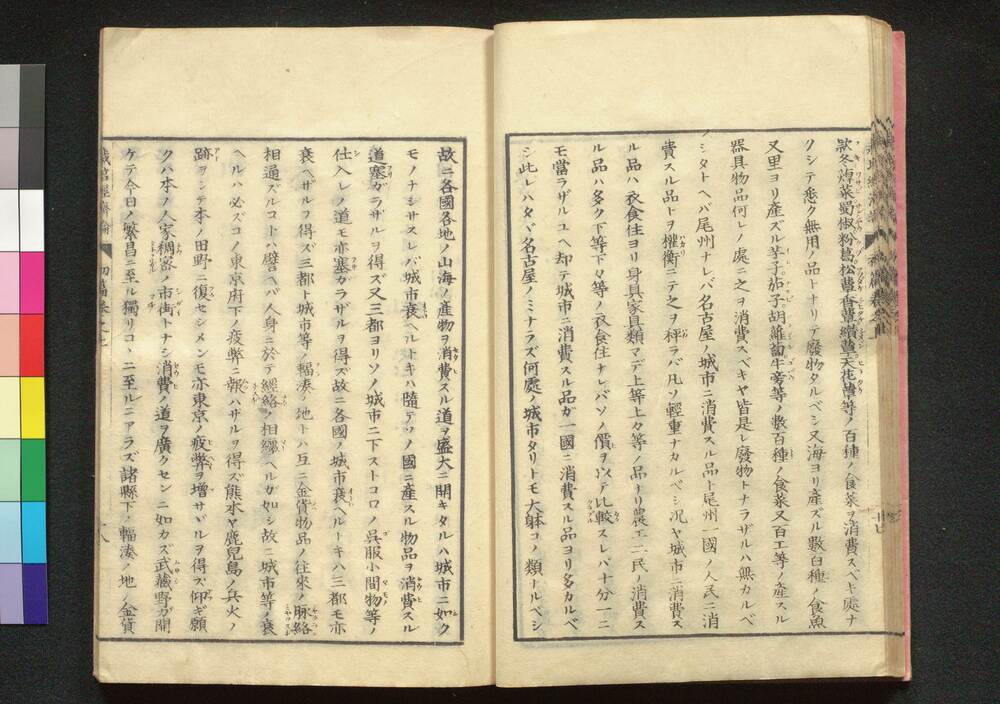 款冬煠菜蜀椒粉葛松蕈香蕈縮蕈天花蕈等ノ百種ノ食菜ヲ消費スベキ處ナ
クシテ悉ク無用ノ品トナリテ廢物タルベシ又海ヨリ產ズル數百種ノ食魚
又里ヨリ產ズル芋子茄子胡蘿蔔牛旁等ノ數百種ノ食菜又百工等ノ產スル
器具物品何レノ處ニ之ヲ消費スベキヤ皆是レ廢物トナラザルハ無カルベ
シタトヘバ尾州ナレバ名古屋ノ城市ニ消費スル品ト尾州一國ノ人民ニ消
費スル品トヲ權衡ニテ之ヲ秤ラバ凡ソ輕重ナカルベシ況ヤ城市ニ消費ス
ル品ハ衣食住ヨリ身具家具類マデ上等上々等ノ品ナリ農工二民ノ消費ス
ル品ハ多ク下等下々等ノ衣食住ナレバソノ價ヲ以テ比較スレバ十分一ニ
モ當ラザルユヘ却テ城市ニ消費スル品ガ一國ニ消費スル品ヨリ多カルベ
シ此レハタヾ名古屋ノミナラズ何處ノ城市タリトモ大躰コノ類ナルベシ
故ニ各國各地ノ山海ノ產物ヲ消費スル道ヲ盛大ニ開キタルハ城市ニ如ク
モノナシサスレバ城市衰ヘルトキハ隨テソノ國ニ產スル物品ヲ消費スル
道塞ガラザルヲ得ズ又三都ヨリソノ城市ニ下ストコロノ呉服小間物等ノ
仕入レノ道モ亦塞ガラザルヲ得ズ故ニ各國ノ城市衰ヘルトキハ三都モ亦
衰ヘザルヲ得ズ三都ト城市等ノ輻湊ノ地トハ互ニ金貨物品ノ往來ノ脉絡
相通ズルコトハ譬ヘバ人身ニ於テ經絡ノ相纒ヘルガ如シ故ニ城市等ノ衰
ヘルハ必ズコノ東京府下ノ疲弊ニ報ハザルヲ得ズ熊本ヤ鹿兒島ノ兵火ノ
跡ヲシテ本ノ田野ニ復セシメンモ亦東京ノ疲弊ヲ增サヾルヲ得ズ仰ギ願
クハ本ノ人家稠密ノ市街トナシ消費ノ道ヲ廣クセンニ如カズ武藏野ガ開
ケテ今日ノ繁昌ニ至ル獨リコヽニ至ルニアラズ諸縣下ノ輻湊ノ地ノ金貨
初篇卷之七
十八